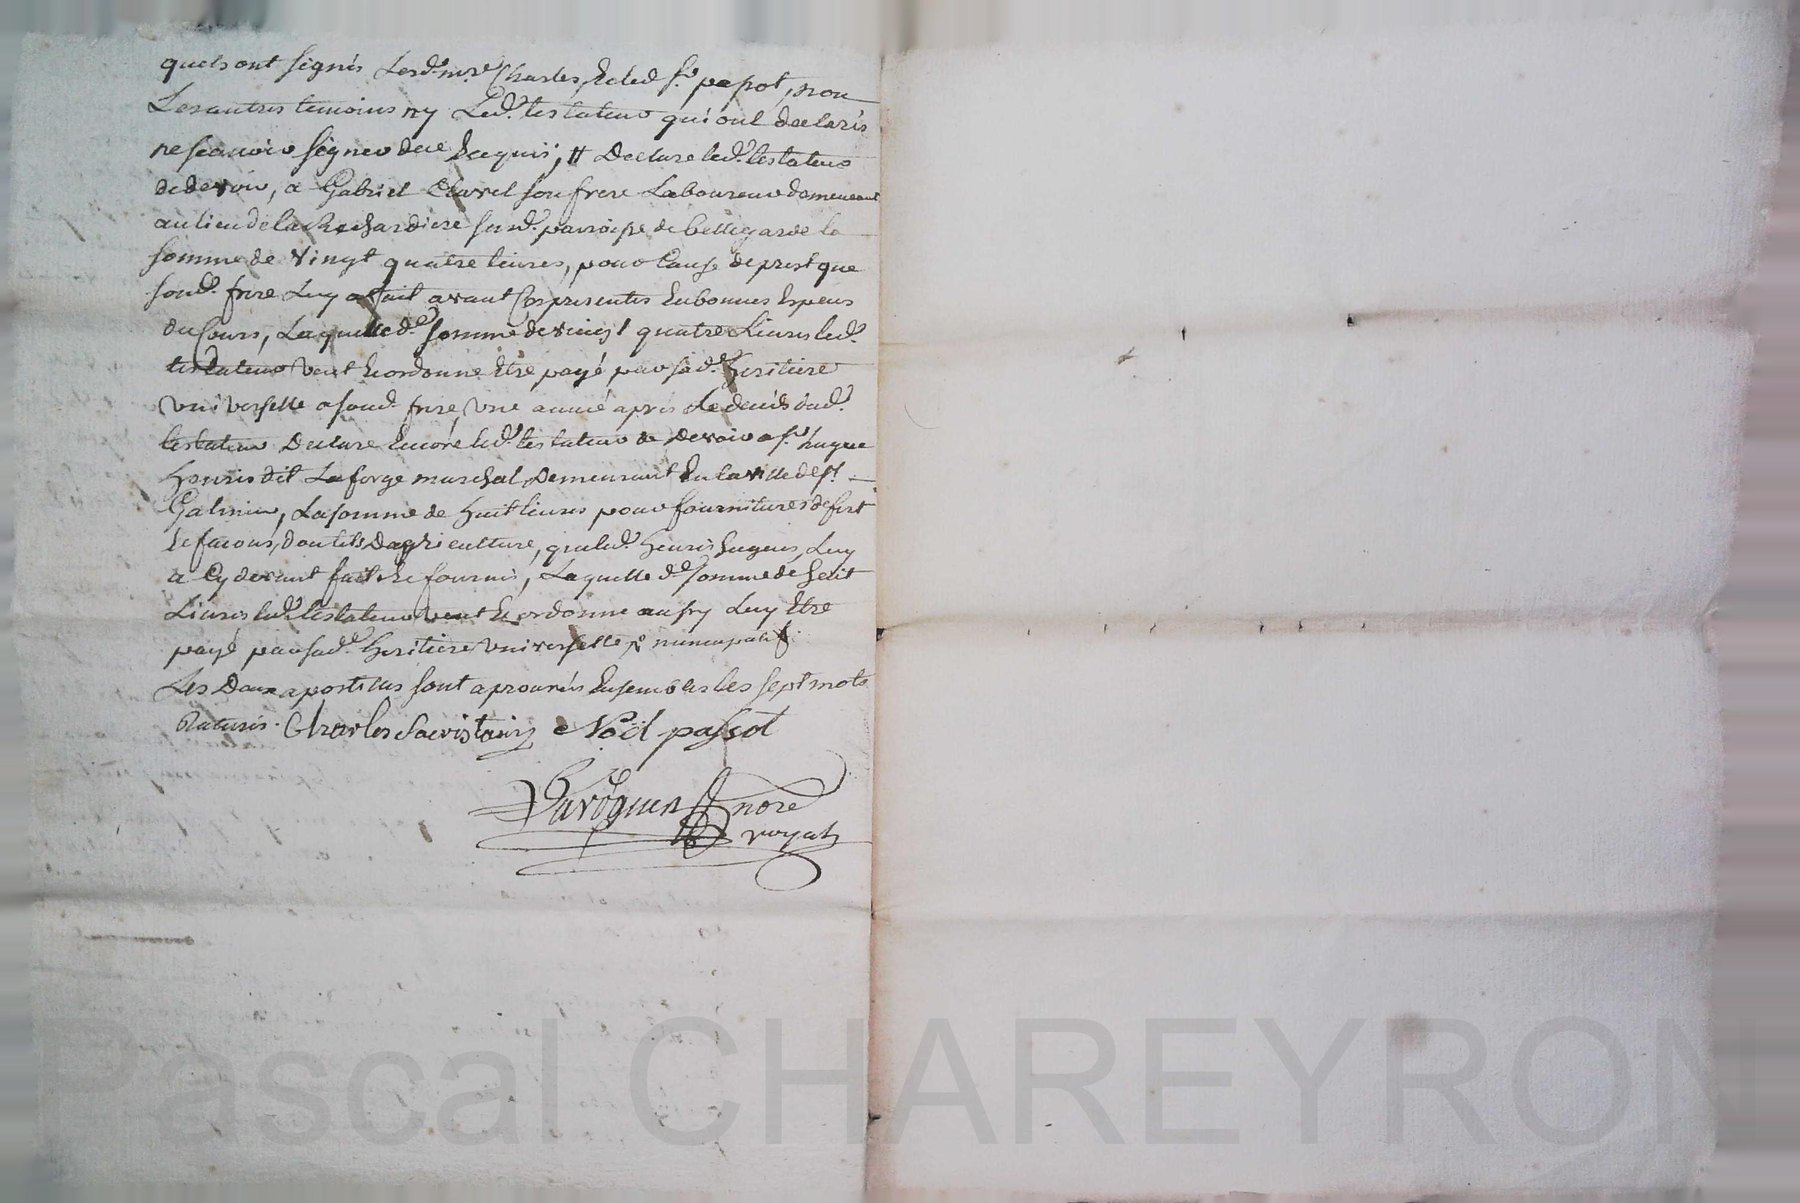 quels ont signés Lesd. mre Charles, Et led. sr. passot, non
Les autres temoins ny Led. testateur qui ont declarés
ne scavoir signer de ce Enquis, # Declare led. testateur
de devoir, a Gabriel Clavel son frere Laboureur demeurant
au lieu de la Richardiere surd. parroisse de bellegarde la
somme de vingt quatre livres, pour Cause de prest que
sond. frere Luy a fait avant Ces presentes En bonnes Especes
du Cours, Laquelle de. somme de vingt quatre Livres led.
testateur veut Et ordonne Etre payé par sad. heritiere
vniverselle a sond. frere, vne année apres Le deceds dud.
testateur Declare Encore led. testateur de Devoir a sr. hugue
Henris dit Laforge marechal Demeurant En la ville de st.
Galmier, La somme de huit livres pour fournitures de fert
Et facons, d'outils D'agriculture, que led. henris hugues, Luy
a Cy devant fait Et fournis, Laquelle de. somme de huit
Livres led. testateur veut Et ordonne aussy Luy Etre
payé par sad. heritiere vniverselle
Les Deux apostilles sont aprouvées Ensembles les sept mots
Raturés. Charles Sacristain Noël passot
nore
royal
Pascal CHAREYRON